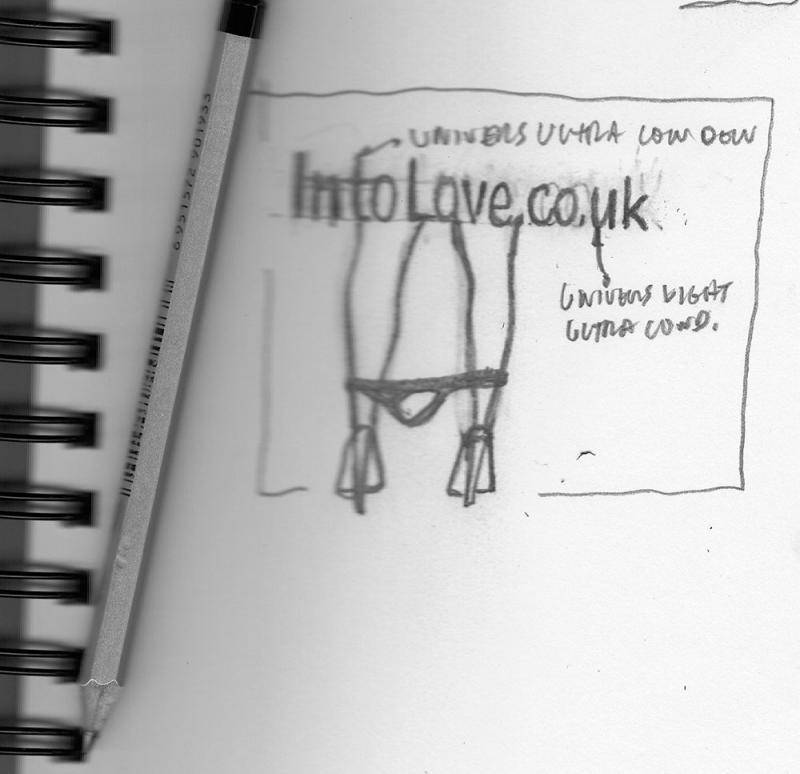 UNIVERS ULTRA CON DOW
IntoLove.co.uk
UNIVERS LIGHT
ULTRA COND.
6 951572 901933